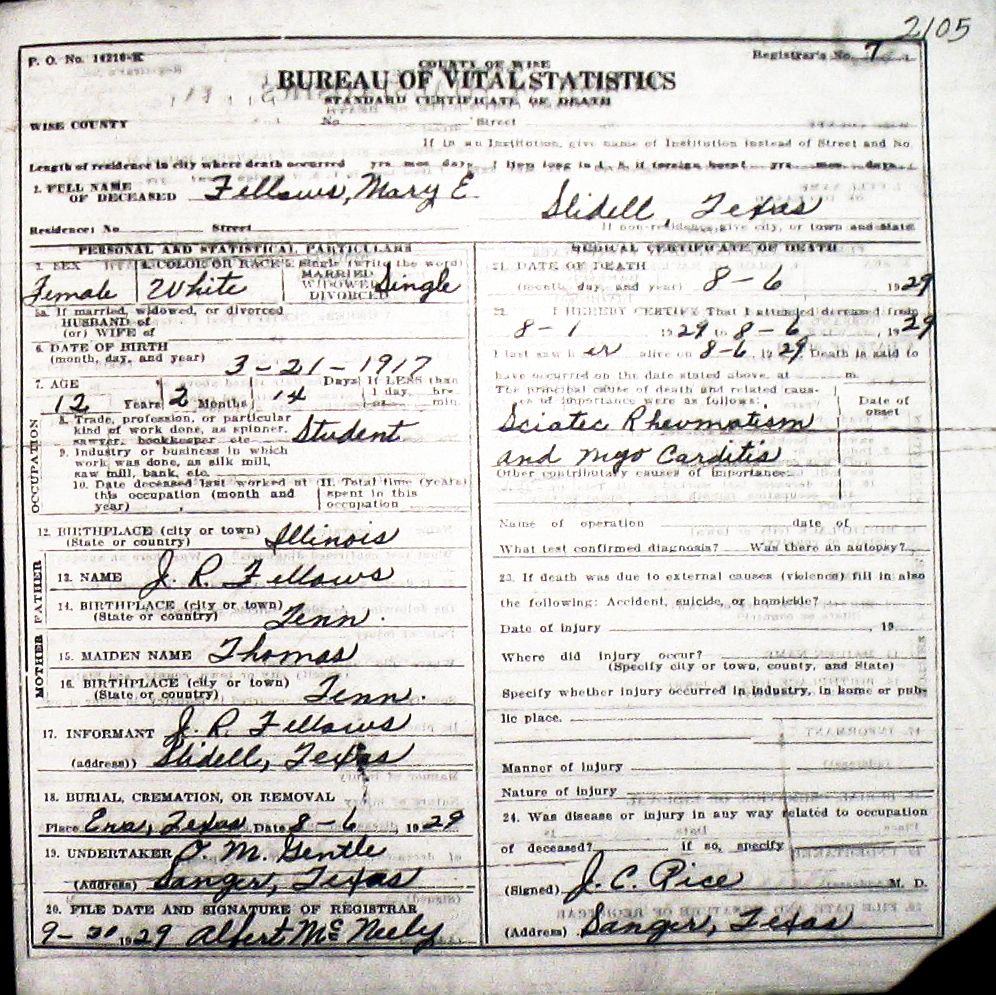 2105
P. O. No. 14210-K
Registrar's No. 7
COUNTY OF WISE
BUREAU OF VITAL STATISTICS
STANDARD CERTIFICATE OF DEATH
WISE COUNTY No. Street
If in an Institution, give name of Institution instead of Street and No.
Length of residence in city where death occurred yrs mos days How long in U. S. if foreign born? yrs. mos. days
FULL NAME OF DECEASED Fellows, Mary E.
Slidell, Texas
Residence: No Street If non-residence give city, or town and State
PERSONAL AND STATISTICAL PARTICULARS
2. SEX 4. COLOR OR RACE 5. Single (write the word) MARRIED WIDOWED DIVORCED
Female White Single
5a. If married, widowed, or divorced
HUSBAND of
(or) WIFE of
6. DATE OF BIRTH
(month, day, and year) 3-21-1917
7. AGE Days If LESS than
12 Years 2 Months 14 1 day, hrs. or min.
OCCUPATION
8. Trade, profession, or particular
kind of work done, as spinner, Student
sawyer, bookkeeper etc
9. Industry or business in which
work was done, as silk mill,
saw mill, bank, etc.
10. Date deceased last worked at this occupation (month and year)
11. Total time (years) spent in this occupation
12. BIRTHPLACE (city or town)
(State or country) Illinois
FATHER
13. NAME J. R. Fellows
14. BIRTHPLACE (city or town)
(State or country) Tenn.
MOTHER
15. MAIDEN NAME Thomas
16. BIRTHPLACE (city or town)
(State or country) Tenn.
17. INFORMANT J. R. Fellows
(address) Slidell, Texas
18. BURIAL, CREMATION, OR REMOVAL
Place Era, Texas Date 8-6, 1929
19. UNDERTAKER O. M. Gentle
(Address) Sanger, Texas
20. FILE DATE AND SIGNATURE OF REGISTRAR
9-30 1929 Albert McNeely
MEDICAL CERTIFICATE OF DEATH
21. DATE OF DEATH
(month, day, and year) 8-6 1929
22. I HEREBY CERTIFY That I attended deceased from
8-1 1929 to 8-6, 1929
I last saw her alive on 8-6, 1929 Death is said to
have occurred on the date stated above, at m.
The principal cause of death and related causes of importance were as follows: Date of onset
Sciatec Rheumatism
and myo Carditis
Other contributory causes of importance:
Name of operation date of
What test confirmed diagnosis? Was there an autopsy?
23. If death was due to external causes (violence) fill in also
the following: Accident, suicide, or homicide?
Date of injury , 19
Where did injury occur?
(Specify city or town, county, and State)
Specify whether injury occurred in industry, in home or pub-
lic place.
Manner of injury
Nature of injury
24. Was disease or injury in any way related to occupation
of deceased? if so, specify
(Signed) J. C. Rice M. D.
(Address) Sanger, Texas